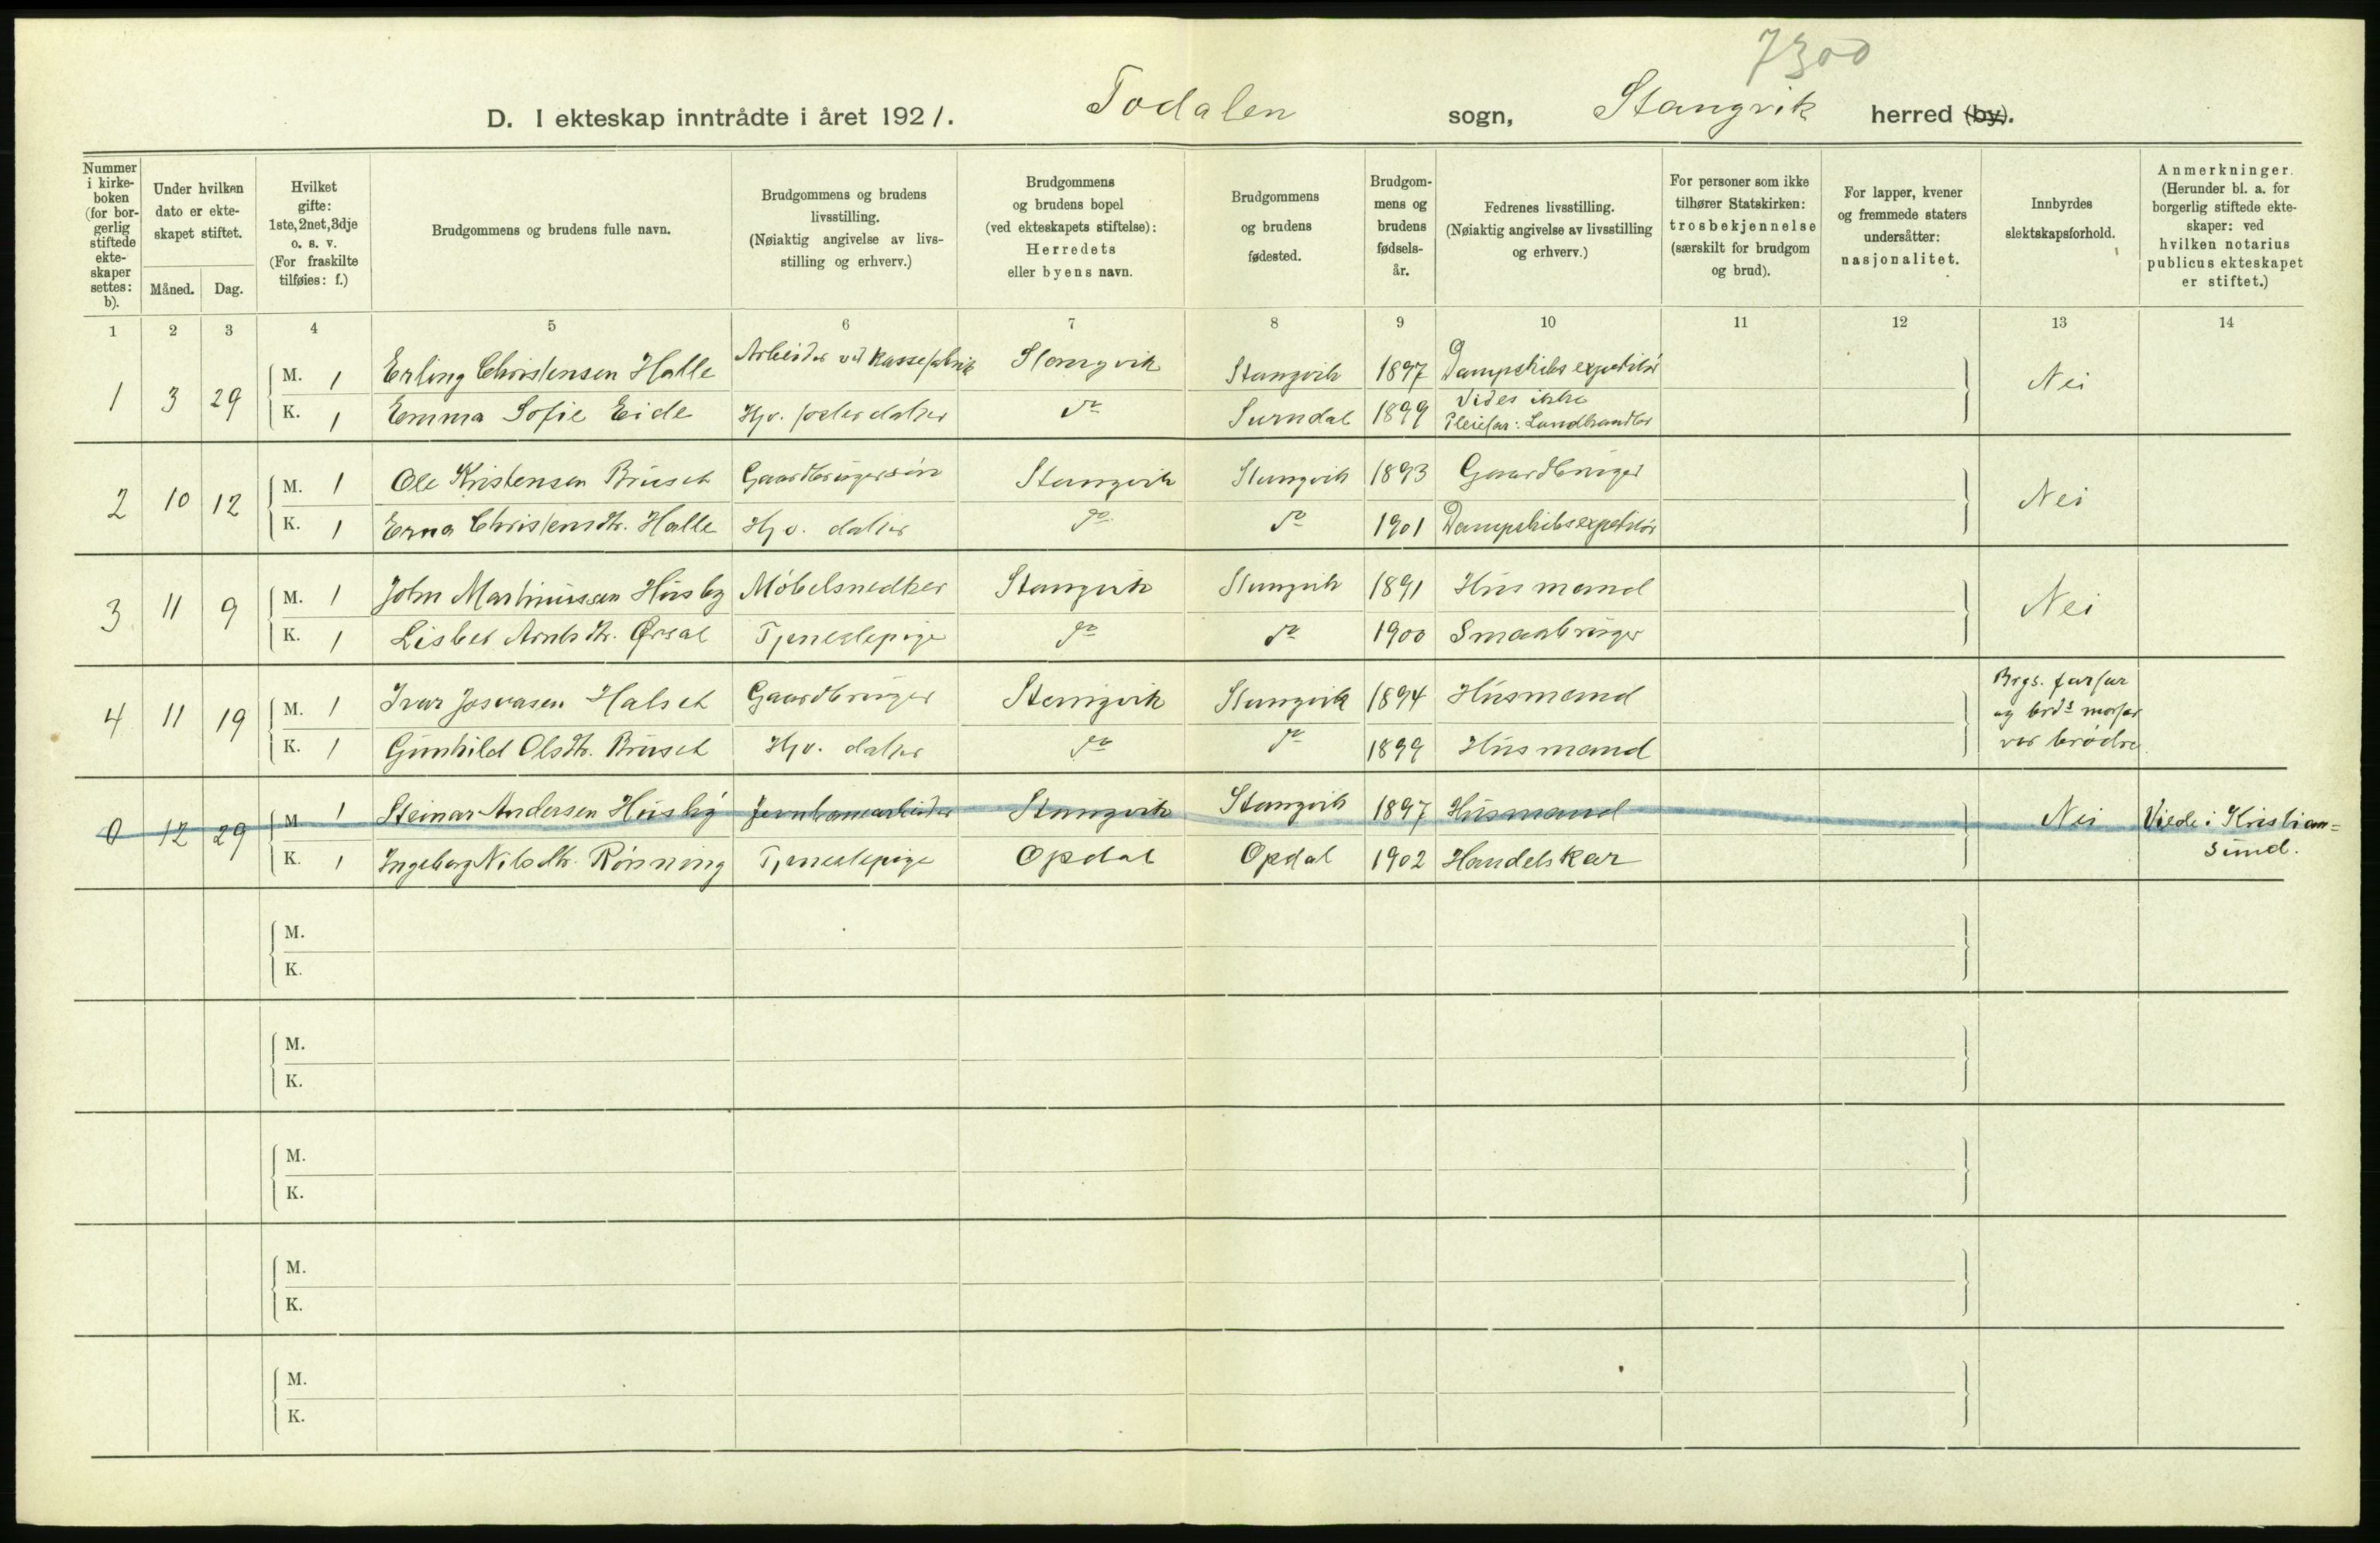 7300
D. I ekteskap inntrådte i året 1921. Todalen sogn, Stangvik herred (by).
Nummer i kirke-boken (for bor-gerlig stiftede ekte-skaper settes: b).
Under hvilken dato er ekte-skapet stiftet.
Måned. Dag.
Hvilket gifte: 1ste, 2net, 3dje o. s. v. (For fraskilte tilføies: f.)
Brudgommens og brudens fulle navn.
Brudgommens og brudens livsstilling. (Nøiaktig angivelse av livs-stilling og erhverv.)
Brudgommens og brudens bopel (ved ekteskapets stiftelse): Herredets eller byens navn.
Brudgommens og brudens fødested.
Brudgom-mens og brudens fødsels-år.
Fedrenes livsstilling. (Nøiaktig angivelse av livsstilling og erhverv.)
For personer som ikke tilhører Statskirken: trosbekjennelse (særskilt for brudgom og brud).
For lapper, kvener og fremmede staters undersåtter: nasjonalitet.
Innbyrdes slektskapsforhold.
Anmerkninger. (Herunder bl. a. for borgerlig stiftede ekte-skaper: ved hvilken notarius publicus ekteskapet er stiftet.)
1 2 3 4 5 6 7 8 9 10 11 12 13 14
1 3 29 M. 1 Erling Christensen Halle Arbeider ved kassefabrik Stangvik Stangvik 1897 Dampskibsexpeditør Nei
K. 1 Emma Sofie Eide Hjv. fosterdatter do Surndal 1899 Vides ikke Pleiefar: Landhandler
2 10 12 M. 1 Ole Kristensen Bruset Gaardbrugersøn Stangvik Stangvik 1893 Gaardbruger Nei
K. 1 Erna Christensdtr. Halle Hjv. datter do do 1901 Dampskibsexpeditør
3 11 9 M. 1 John Martinussen Husby Møbelsnedker Stangvik Stangvik 1891 Husmand Nei
K. 1 Lisbet Arntsdtr. Ørsal Tjenestepige do do 1900 Smaabruger
4 11 19 M. 1 Ivar Josvasen Halset Gaardbruger Stangvik Stangvik 1894 Husmand Brgs. farfar og brds morfar var brødre
K. 1 Gunhild Olsdtr. Bruset Hjv. datter do do 1899 Husmand
0 12 29 M 1 Steinar Andersen Husby Jernbanearbeider Stangvik Stangvik 1897 Husmand Nei Viede i Kristian=sund.
K. 1 Ingeborg Nilsdtr. Rønning Tjenestepige Opdal Opdal 1902 Handelskar
M.
K.
M.
K.
M.
K.
M.
K.
M.
K.